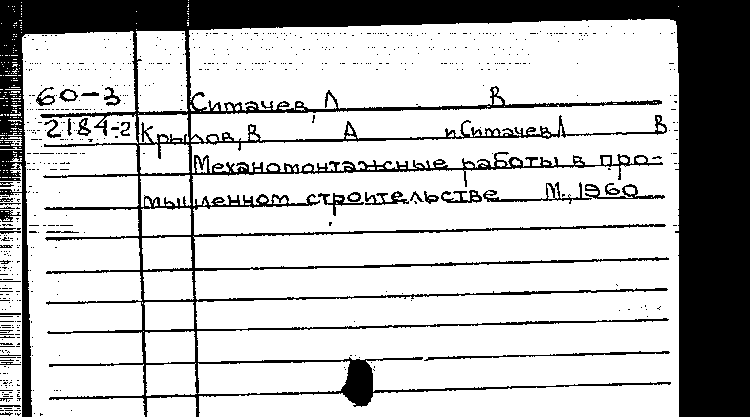 60-3 Ситачев, Л В
2184-2 Крылов, В А и Ситачев Л В
Механомонтажные работы в про-
мышленном строительстве М., 1960